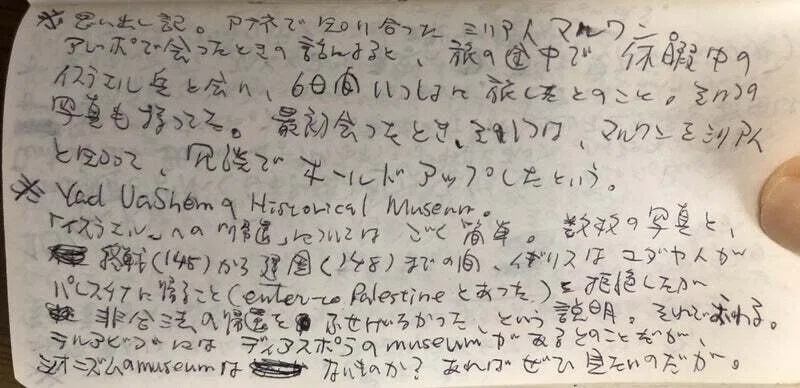 ※ 思い出し記。アテネで知り合ったシリア人マルワン。
アレッポで会ったときの話によると、旅の途中で休暇中の
イスラエル兵と会い、6日間いっしょに旅したとのこと。そいつの
写真も持ってた。最初会ったとき、そいつは、マルワンをシリア人
と知って、冗談でホールドアップしたという。
※ Yad VaShemのHistorical Museum。
「イスラエル」への帰還についてはごく簡単。数枚の写真と、
終戦('45)から建国('48)までの間、イギリスはユダヤ人が
パレスチナに帰ること(enter to Palestineとあった)を拒絶したが
非合法の帰還をふせげなかった、という説明。それでおわる。
テルアビブにはディアスポラのmuseumがあるとのことだが、
シオニズムのmuseumはないものか?あればぜひ見たいのだが。